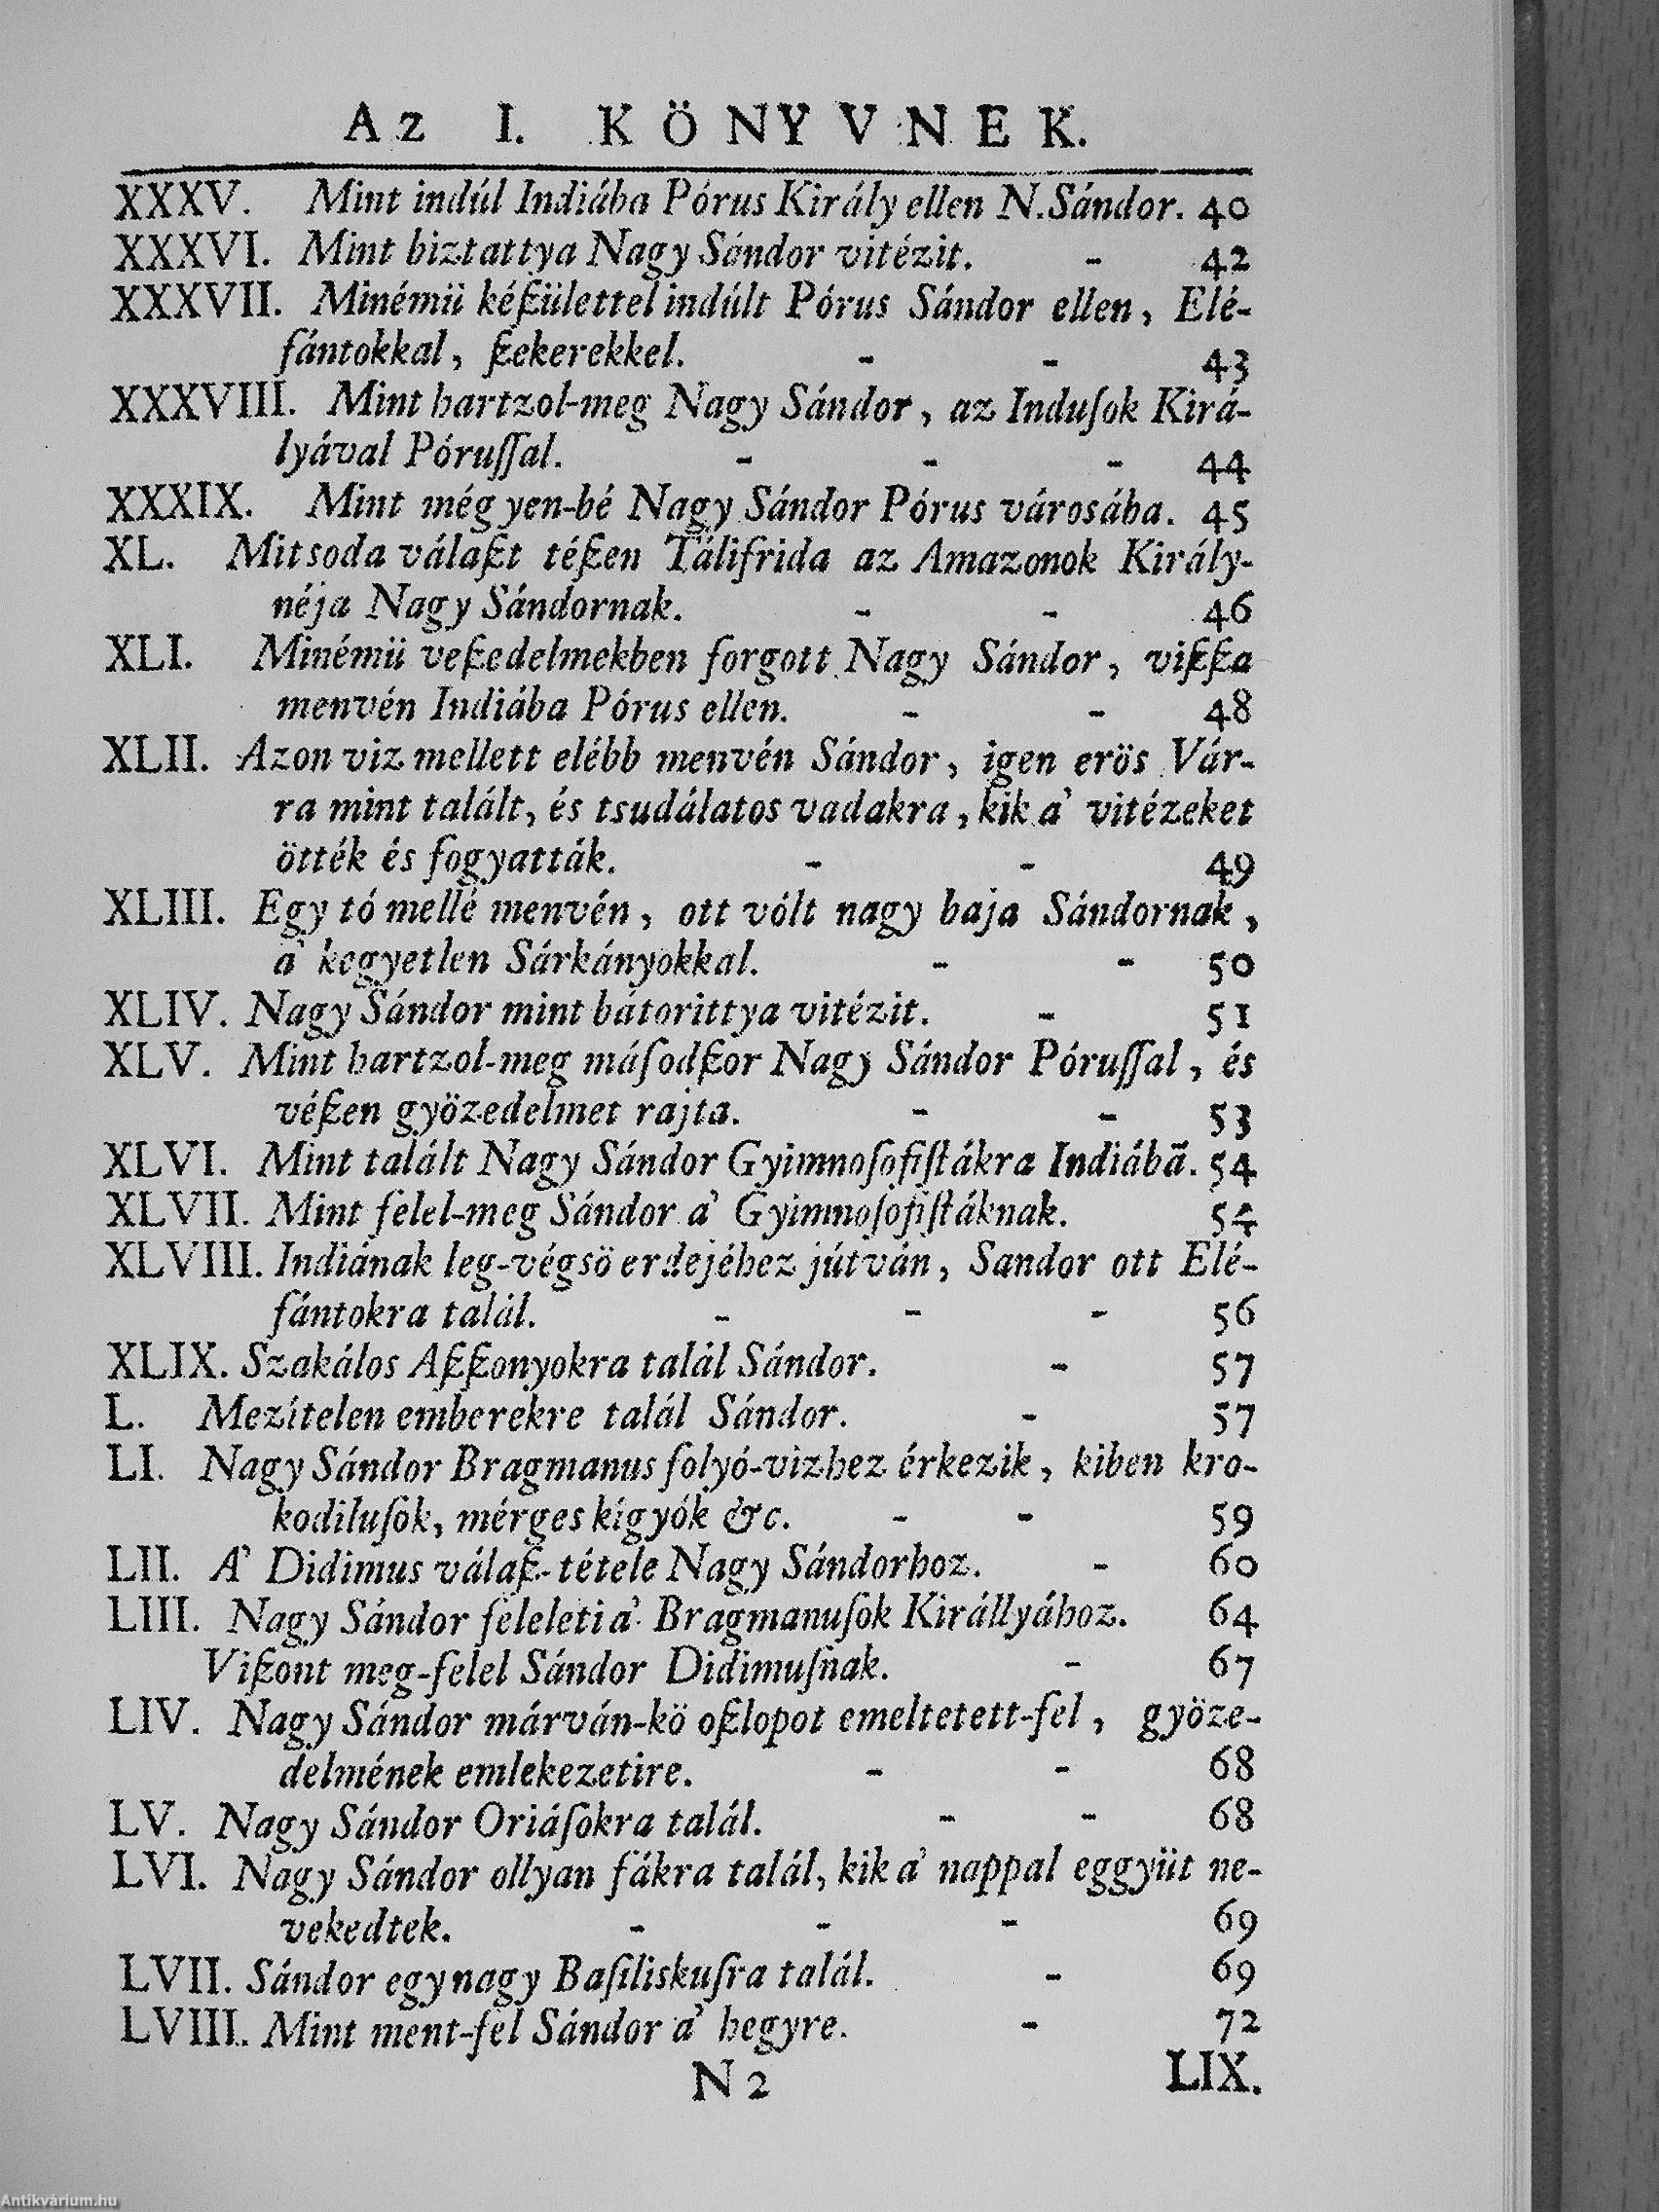 Az I. KÖNYVNEK.
XXXV. Mint indúl Indiába Pórus Király ellen N. Sándor. 40
XXXVI. Mint biztattya Nagy Sándor vitézit. - 42
XXXVII. Minémü kéßülettel indúlt Pórus Sándor ellen, Elé-
fántokkal, ßekerekkel. - - 43
XXXVIII. Mint hartzol-meg Nagy Sándor, az Induſok Kirá-
lyával Póruſſal. - - - 44
XXXIX. Mint mégyen-bé Nagy Sándor Pórus városába. 45
XL. Mitsoda válaßt téßen Tálifrida az Amazonok Király-
néja Nagy Sándornak. - - 46
XLI. Minémü veßedelmekben forgott Nagy Sándor, vißßa
menvén Indiába Pórus ellen. - - 48
XLII. Azon viz mellett elébb menvén Sándor, igen erös Vár-
ra mint talált, és tsudálatos vadakra, kik a' vitézeket
ötték és fogyatták. - - 49
XLIII. Egy tó mellé menvén, ott vólt nagy baja Sándornak,
a' kegyetlen Sárkányokkal. - - 50
XLIV. Nagy Sándor mint bátorittya vitézit. - 51
XLV. Mint hartzol-meg máſodßor Nagy Sándor Póruſſal, és
véßen gyözedelmet rajta. - - 53
XLVI. Mint talált Nagy Sándor Gyimnoſofiſtákra Indiábā. 54
XLVII. Mint felel-meg Sándor a' Gyimnoſofiſtáknak. 54
XLVIII. Indiának leg-végsö erdejéhez jútván, Sandor ott Elé-
fántokra talál. - - - 56
XLIX. Szakálos Aßßonyokra talál Sándor. - 57
L. Mezítelen emberekre talál Sándor. - 57
LI. Nagy Sándor Bragmanus folyó-vizhez érkezik, kiben kro-
kodiluſok, mérges kígyók &c. - - 59
LII. A' Didimus válaß-tétele Nagy Sándorhoz. - 60
LIII. Nagy Sándor feleleti a' Bragmanuſok Királlyához. 64
Vißont meg-felel Sándor Didimuſnak. - 67
LIV. Nagy Sándor márván-kö oßlopot emeltetett-fel, gyöze-
delmének emlekezetire. - - 68
LV. Nagy Sándor Oriáſokra talál. - - 68
LVI. Nagy Sándor ollyan fákra talál, kik a' nappal eggyüt ne-
vekedtek. - - - 69
LVII. Sándor egy nagy Baſiliskuſra talál. - 69
LVIII. Mint ment-fel Sándor a' hegyre. - 72
N 2 LIX.
Antikvárium.hu